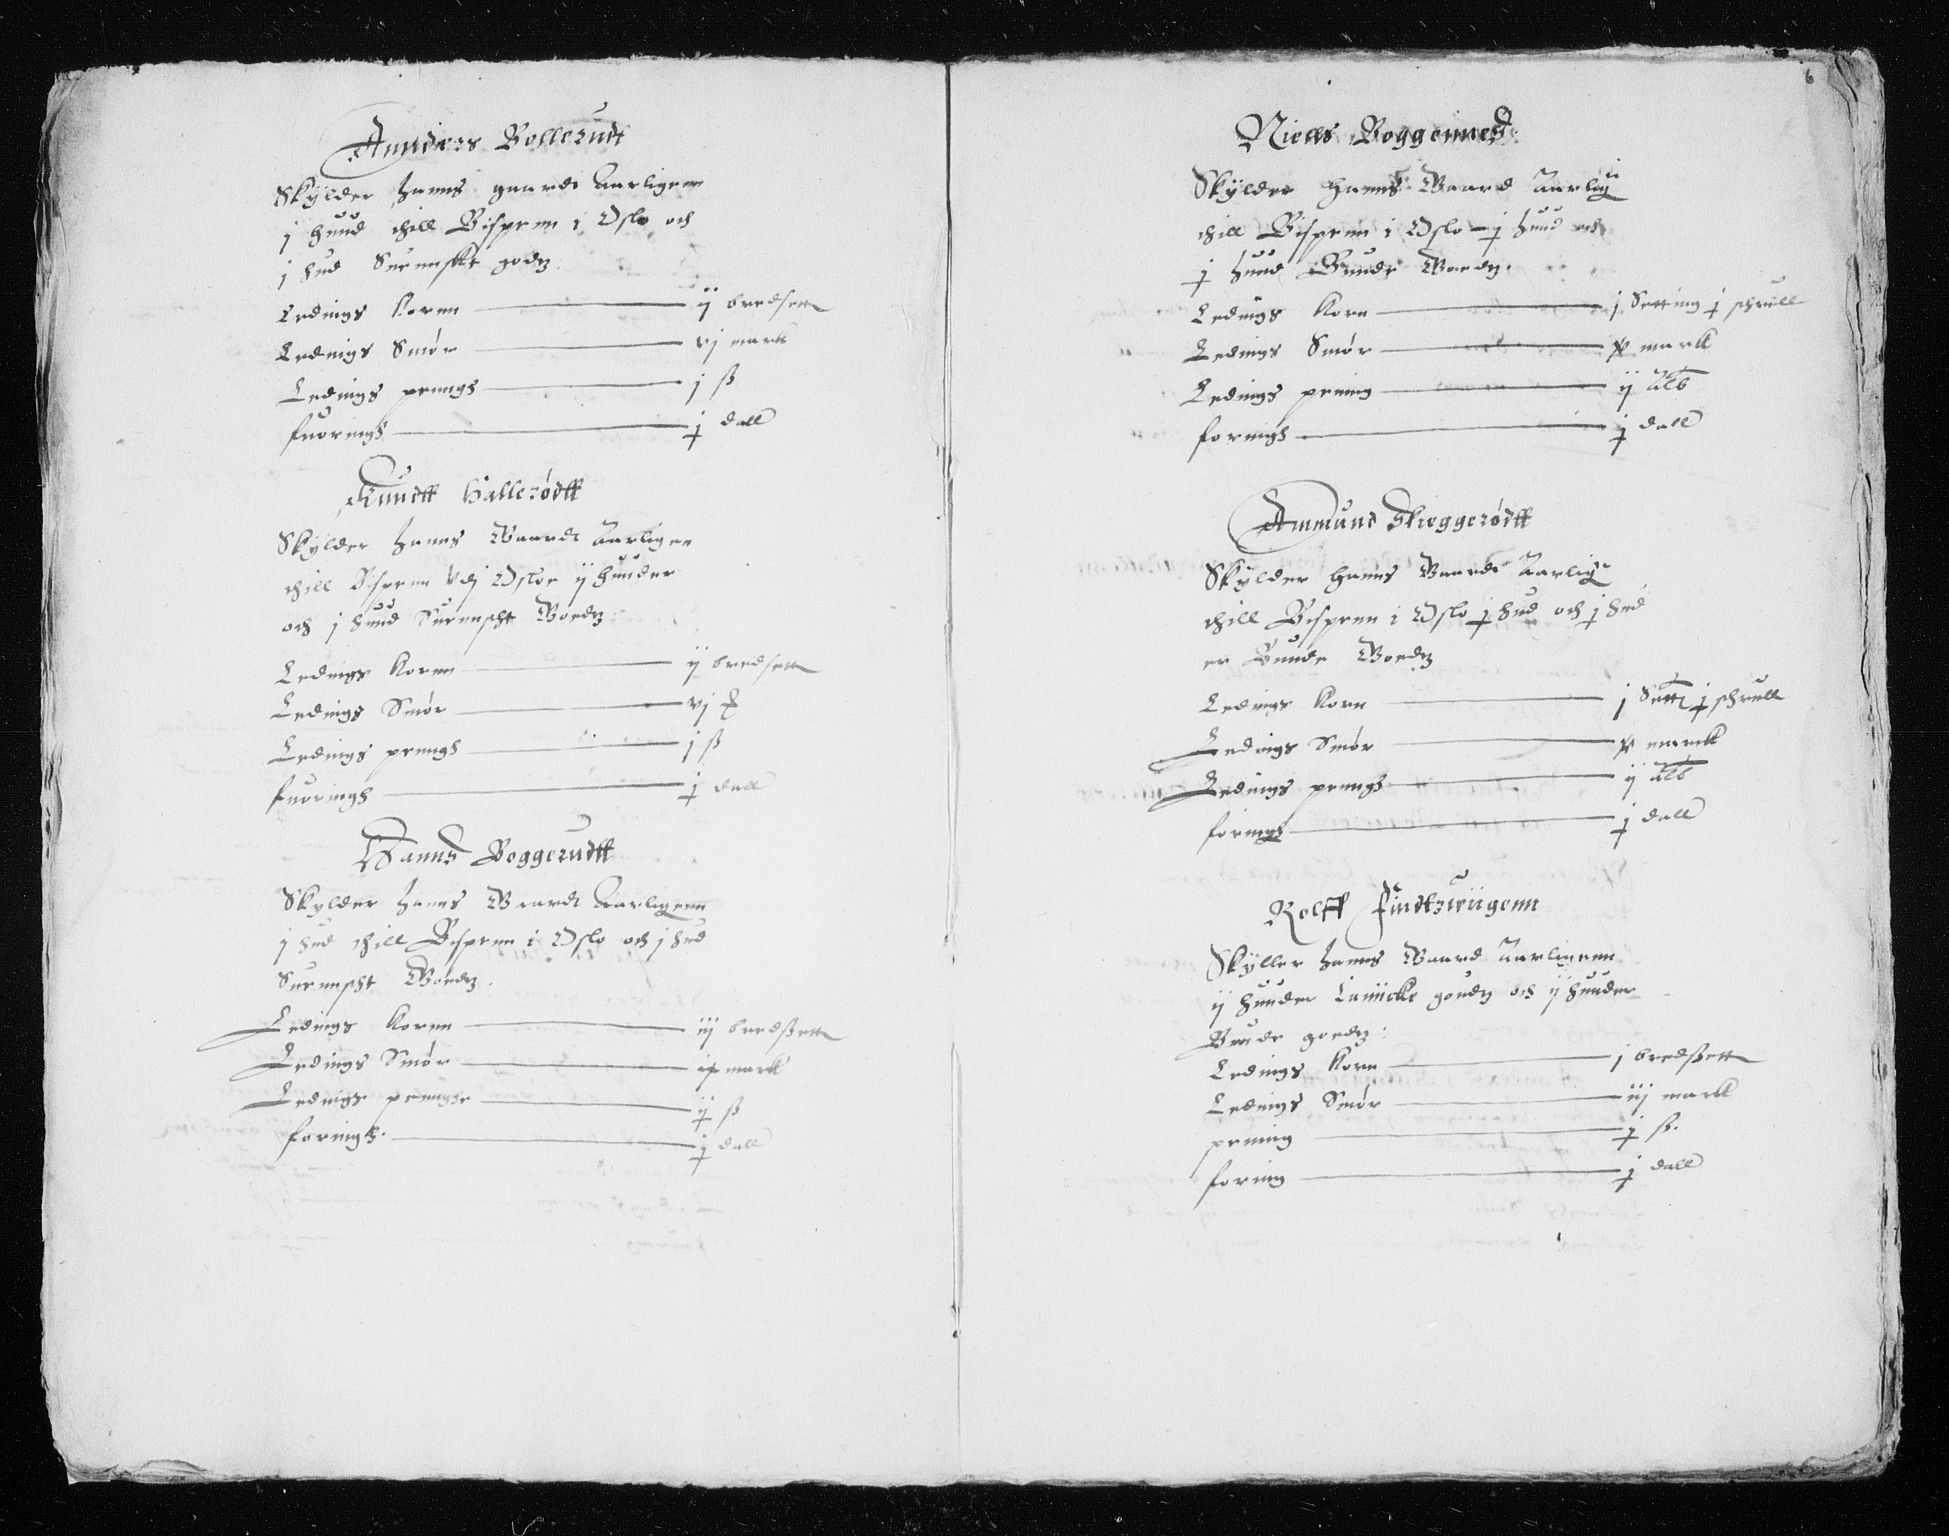 Annders Bollerudt
Skÿlder hanns gaardt Aarligenn
j huud thill Bispenn i Oslo och
j hud Suennske godz
Ledings Kornn ij bredsett
Ledings Smør vj mark
Ledings penngh j ß
fuoringh j dall
Knudtt Hallerødtt
Skÿlder hanns Gaardt Aarligen
thill Bispenn vdj Osloe ij huuder
och j huud Suenscht Goedz
Ledings Kornn ij bredsett
Ledings Smør vj
Ledings penngh j ß
fuoringh j dall
Hanns Boggerudtt
Skylder hanns Gaardt Aarligenn
j hud thill Bispenn i Oslo och j hud
Suenscht Goedz
Ledings Kornn iij bredßett
Ledings Smør ix mark
Ledings pennghe ij ß
foringh j dall
6
Niells Boggennes
Skÿlder hanns Gaard Aarlig
thill Bispenn i Oslo j huud och
j huud Bunde Goedz
Ledings Korn j Setting j schrull
Ledings Smør mark
Ledings penning ij alb
foringh j dall
Ammund Skeggerødtt
Skÿlder hanns Gaardt Aarlig
thill Bispenn i Oslo j hud och j hud
er Bunde Goedz
Ledings Korn j Sett j schrull
Ledings Smør marck
Ledings penngh ij alb
foringh j dall
Rolff
Skÿller hanns Gaard Aarligenn
ij huuder goudz och ij huuder
Bunde goedz
Ledings Korn j bredßett
Ledings Smør iij mark
penning j ß
foring j dall